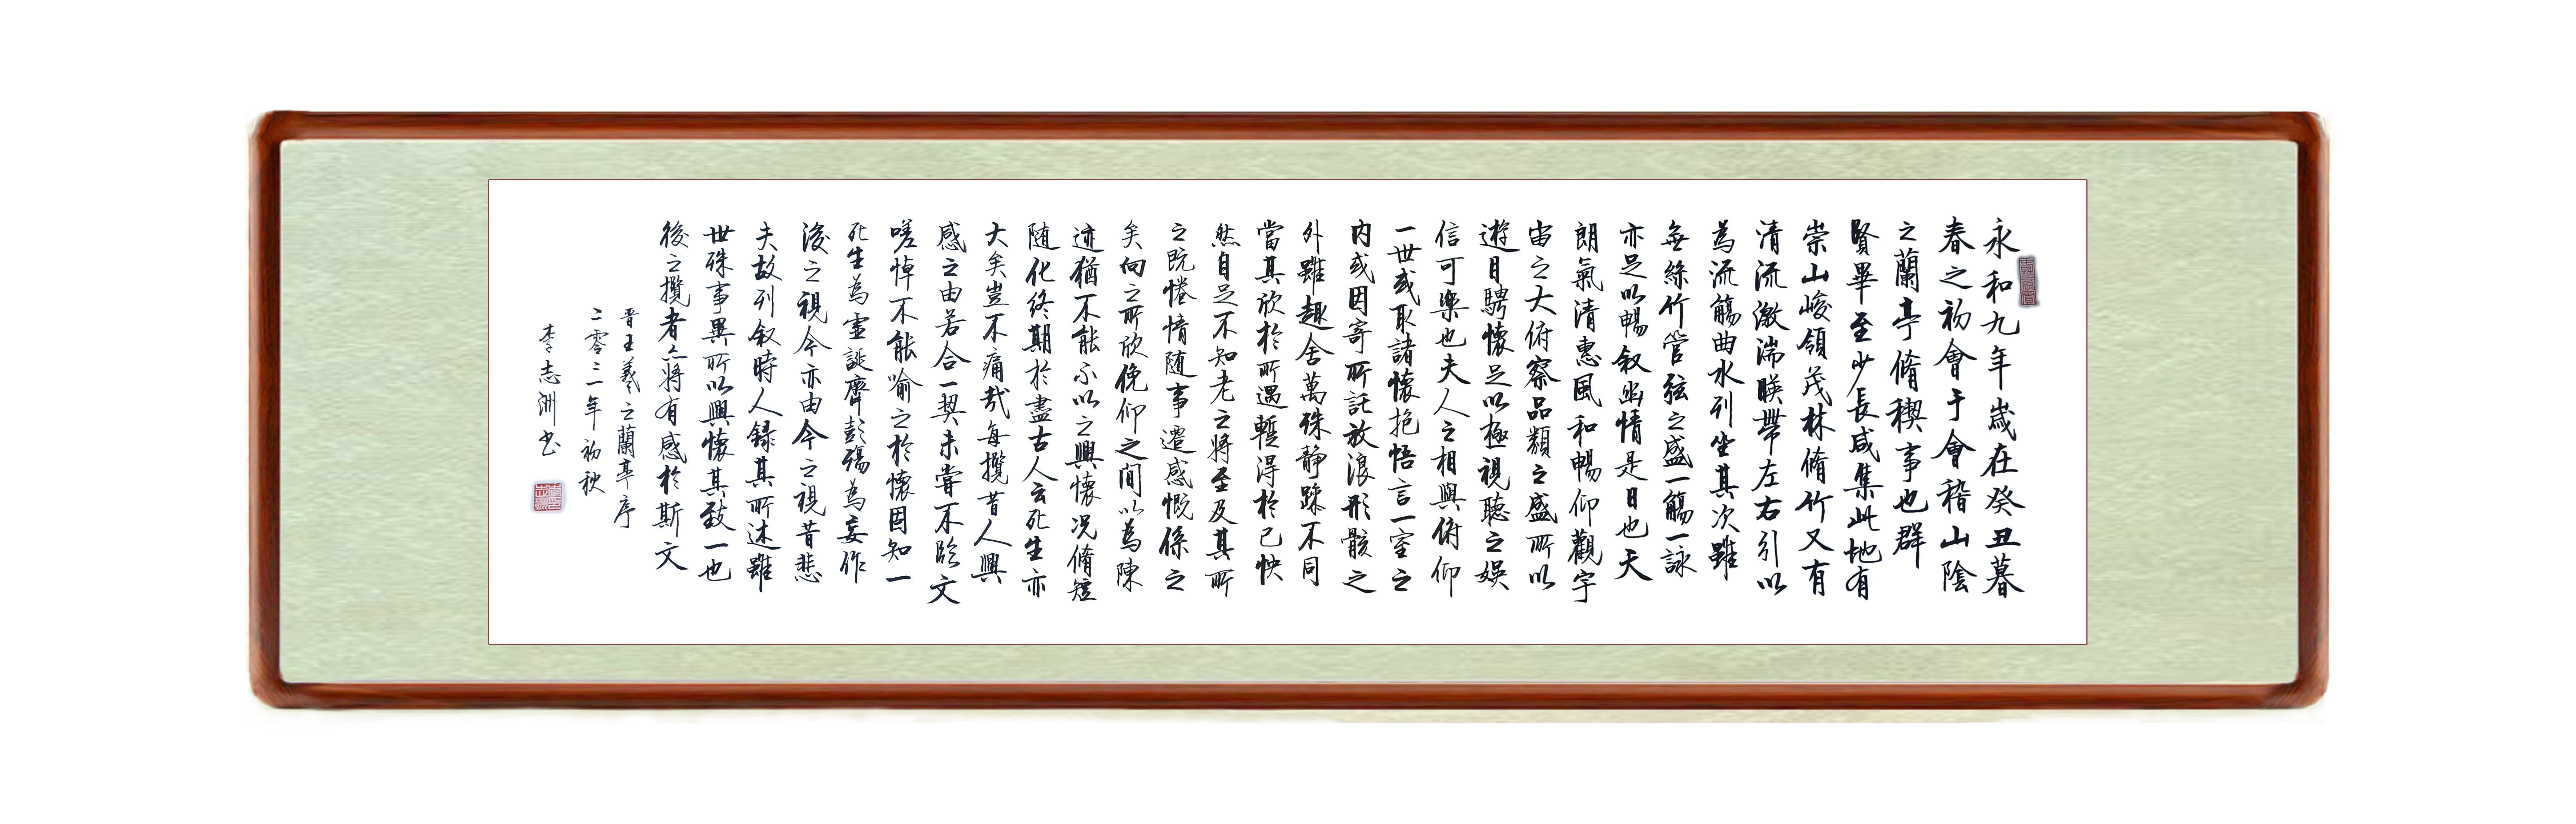 永和九年歲在癸丑暮
春之初會于會稽山陰
之蘭亭脩稧事也群
賢畢至少長咸集此地有
崇山峻領茂林脩竹又有
清流激湍暎帶左右引以
為流觴曲水列坐其次雖
無絲竹管弦之盛一觴一詠
亦足以暢叙幽情是日也天
朗氣清惠風和暢仰觀宇
宙之大俯察品類之盛所以
遊目騁懷足以極視聽之娛
信可樂也夫人之相與俯仰
一世或取諸懷抱悟言一室之
内或因寄所託放浪形骸之
外雖趣舍萬殊静躁不同
當其欣於所遇暫得於己怏
然自足不知老之將至及其所
之既惓情随事遷感慨係之
矣向之所欣俛仰之間以為陳
迹猶不能不以之興懷况脩短
随化終期於盡古人云死生亦
大矣豈不痛哉每攬昔人興
感之由若合一契未嘗不臨文
嗟悼不能喻之於懷固知一
死生為虛誕齊彭殤為妄作
後之視今亦由今之視昔悲
夫故列叙時人録其所述雖
世殊事異所以興懷其致一也
後之攬者亦將有感於斯文
晋王羲之蘭亭序
二零二一年初秋
李志洲书